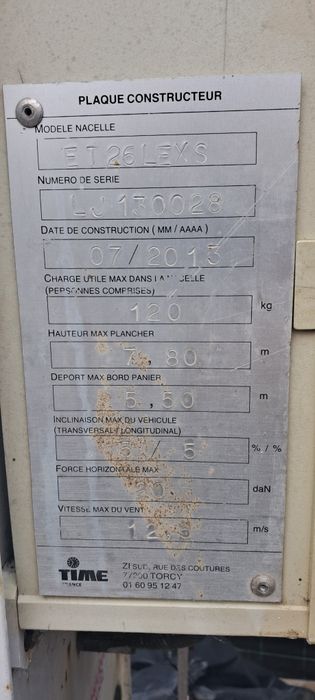 PLAQUE CONSTRUCTEUR
MODELE NACELLE
ET26LEXS
NUMERO DE SERIE
LJ130028
DATE DE CONSTRUCTION ( MM / AAAA )
07/2013
CHARGE UTILE MAX DANS LA NACELLE
(PERSONNES COMPRISES)
120 kg
HAUTEUR MAX PLANCHER
7,80 m
DEPORT MAX BORD PANIER
5,50 m
INCLINAISON MAX DU VEHICULE
(TRANSVERSAL / LONGITUDINAL)
/ 5 % / %
FORCE HORIZONTALE MAX
daN
VITESSE MAX DU VENT
12,5 m/s
TIME
FRANCE
ZI SUD, RUE DES COUTURES
77200 TORCY
01 60 95 12 47